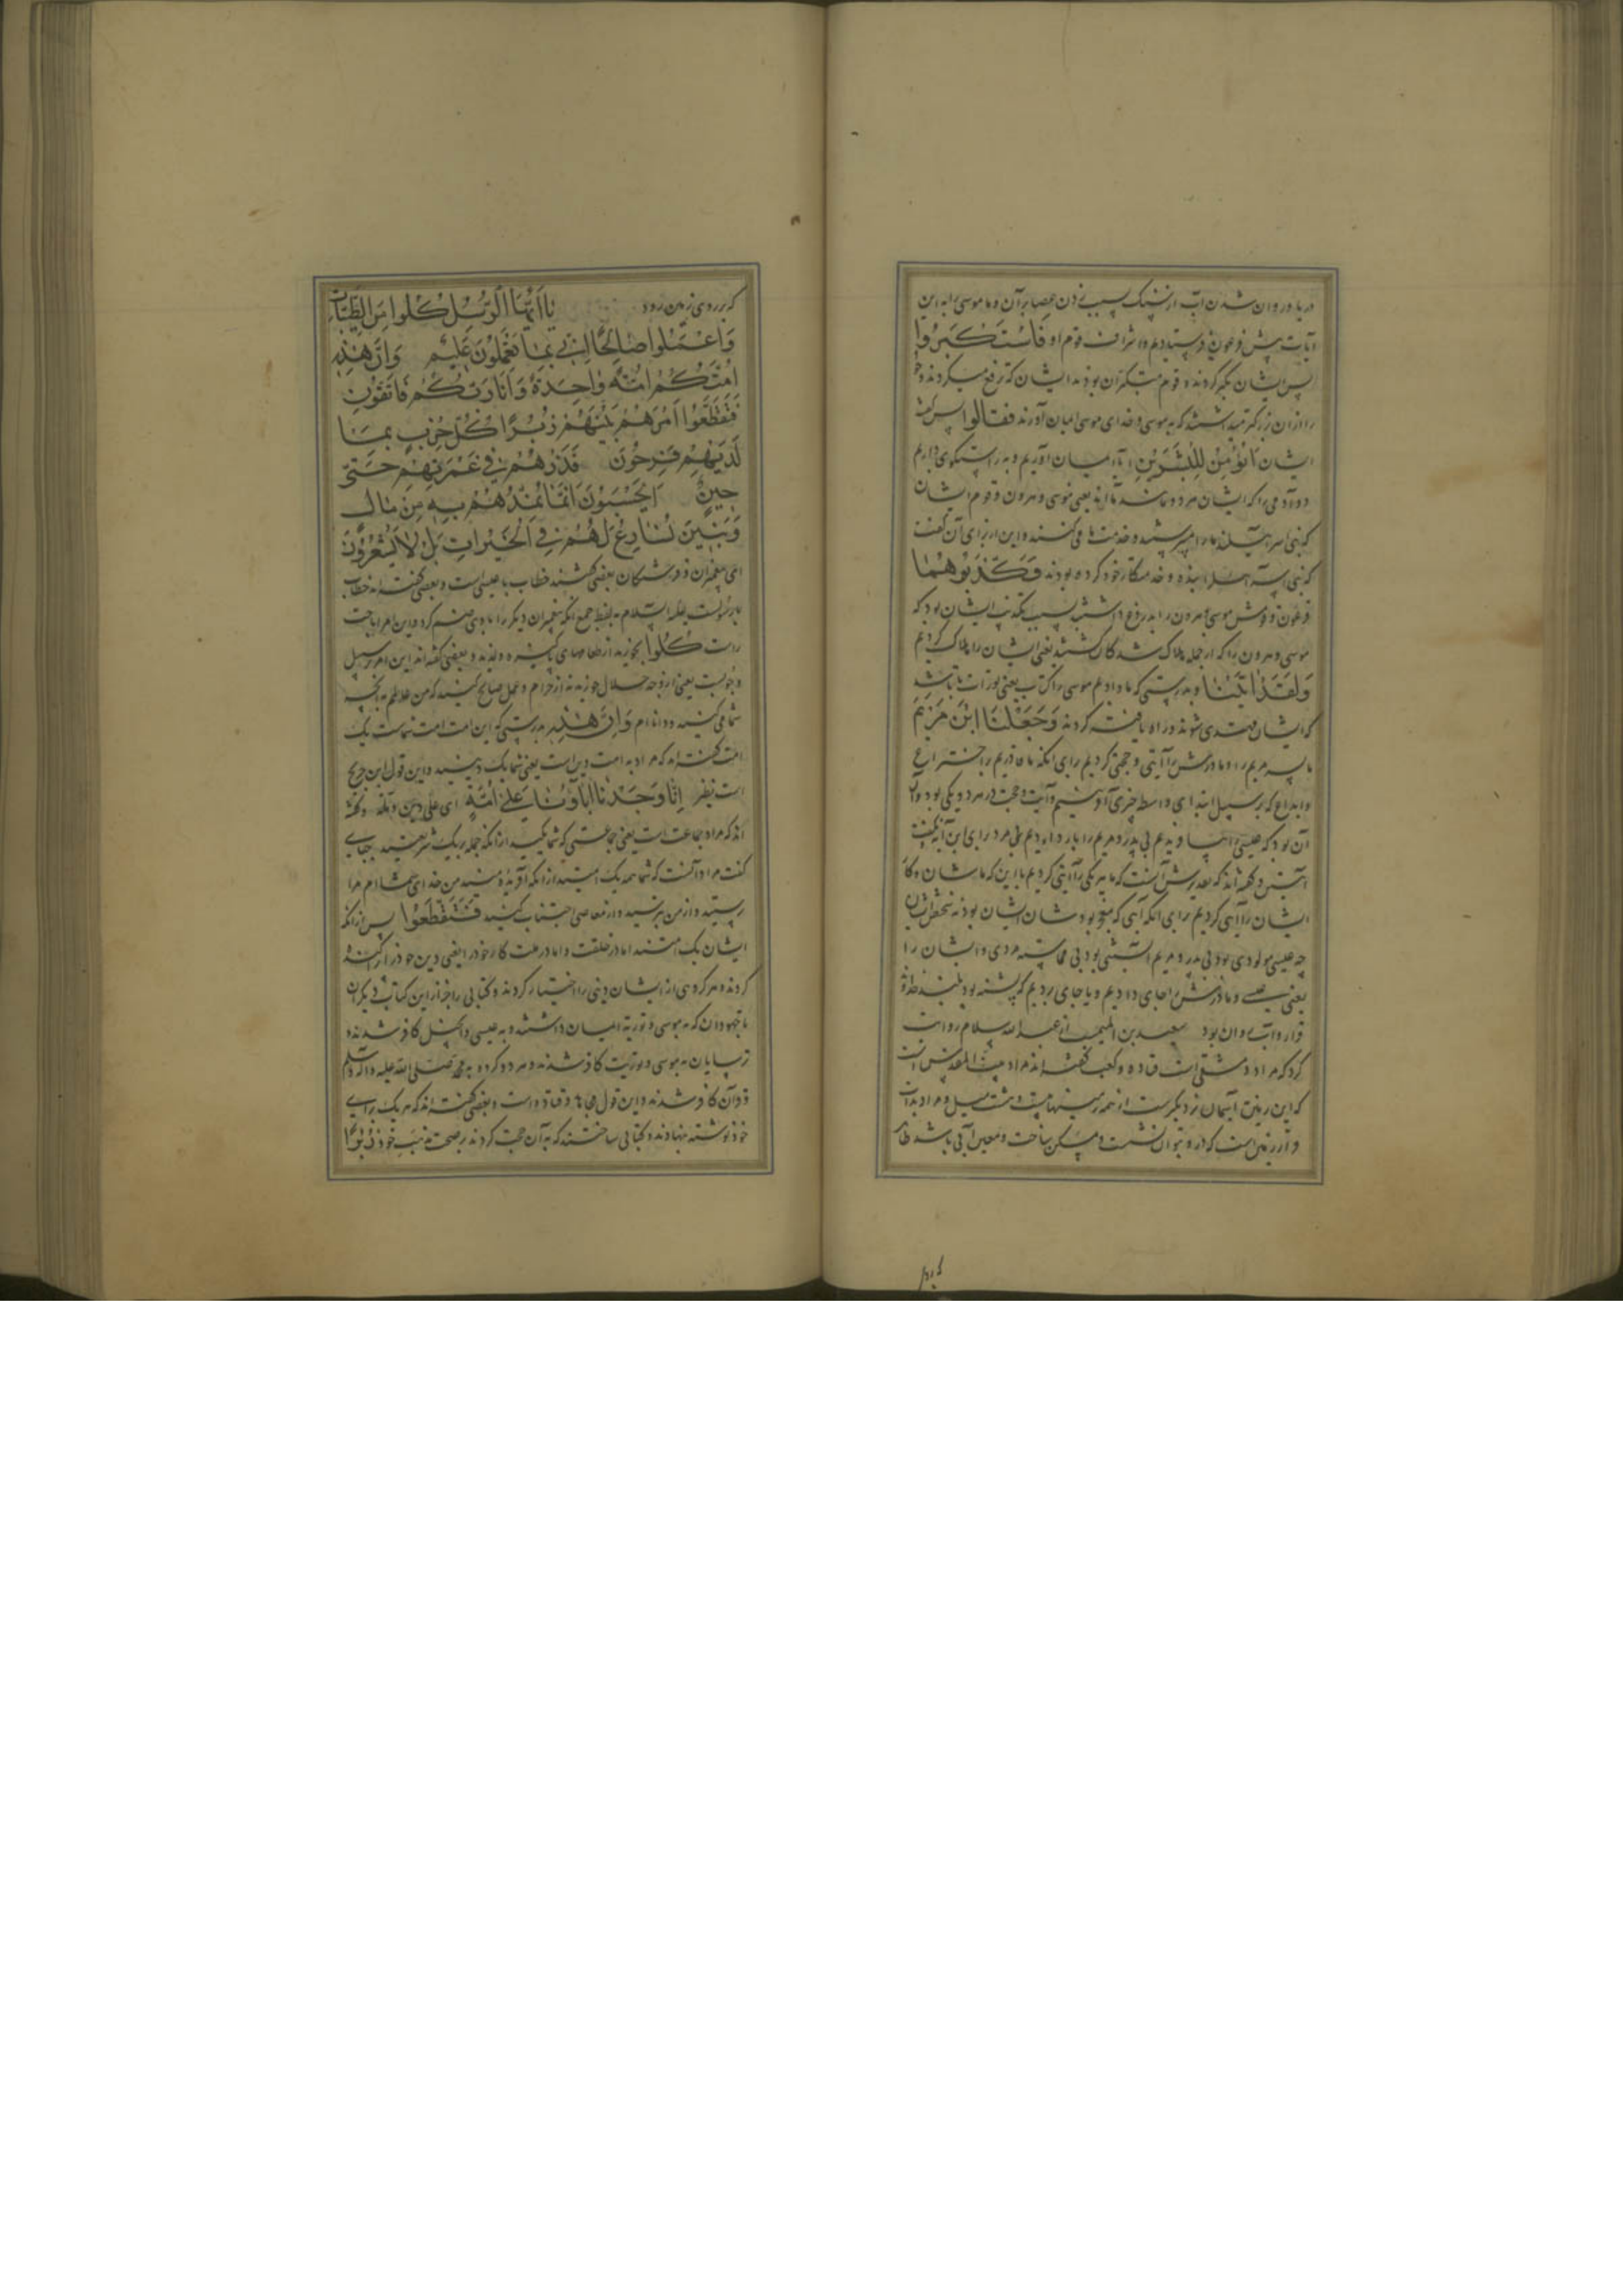 دریا و روان شدن آب از سنگ بسبب زدن عصا بر آن و ما موسی را به این
آیات پیش فرعون فرستادیم و اشراف قوم او فَاسْتَكْبَرُوا
پس ایشان تکبر کردند و قوم متکبران بودند ایشان که ترفع میکردند و خود
را از آن بزرگتر میداشتند که به موسی و خدای موسی ایمان آورند فقالوا پس گفتند
ایشان أَنُؤْمِنُ لِبَشَرَيْنِ آیا ایمان آوریم و به راستگوی داریم
دو آدمی را که ایشان هر دو مانند مااند یعنی موسی و هرون و قوم ایشان
که بنی اسرائیلند ما را میپرستند و خدمت ما می کنند و این از برای آن گفت
که بنی اسرائیل را بنده و خدمتکار خود کرده بودند فَكَذَّبُوهُمَا
فرعون و قومش موسی و هرون را بدروغ داشتند بسبب تکذیب ایشان بود که
موسی و هرون را که از جمله هلاک شدگان شدند یعنی ایشان را هلاک کردیم
وَلَقَدْ اٰتَيْنَا و بدرستی که ما دادیم موسی را کتاب یعنی تورات تا باشد
که ایشان مهتدی شوند و راه یافته گردند وَجَعَلْنَا ابْنَ مَرْيَمَ
ما پسر مریم را و مادرش را آیتی و حجتی کردیم برای آنکه ما قدیم بر اختراع
و ابداع که بر سبیل ابتدا بی واسطه چیزی آفرینیم و آیت و حجت در هر دو یکی بود و آن
آن بود که عیسی را بیافریدیم بی پدر و مریم را بار دادیم بی مرد برای این آیه گفت
آیتین و گفته اند که تقدیرش آنست که ما هر یکی را آیتی کردیم با این که ما شان و کار
ایشان را آیتی کردیم برای آنکه آیتی که معجز بود شان ایشان بود نه شخص ایشان
چه عیسی مولودی بود بی پدر و مریم آبستنی بود بی مماسه مردی و ایشان را
یعنی عیسی و مادرش را جای دادیم و با جای بردیم که پشته بود بلند خداوند
قرار و آب روان بود سعید بن المسیب از عبد الله سلام روایت
کرد که مراد دمشق است قتاده و کعب گفته اند مراد بیت المقدس است
که این زمین بآسمان نزدیکترست از همه زمینها بیست و هشت میل و مراد بذات
قرار زمین است که در و بتوان نشست و مسکن ساخت و معین آبی باشد ظاهر
که بر
که بر روی زمین رود يَا أَيُّهَا الرُّسُلُ كُلُوا مِنَ الطَّيِّبَاتِ
وَاعْمَلُوا صَالِحًا إِنِّي بِمَا تَعْمَلُونَ عَلِيمٌ وَإِنَّ هٰذِهِ
أُمَّتُكُمْ أُمَّةً وَاحِدَةً وَأَنَا رَبُّكُمْ فَاتَّقُونِ
فَتَقَطَّعُوا أَمْرَهُمْ بَيْنَهُمْ زُبُرًا كُلُّ حِزْبٍ بِمَا
لَدَيْهِمْ فَرِحُونَ فَذَرْهُمْ فِي غَمْرَتِهِمْ حَتّٰى
حِينٍ أَيَحْسَبُونَ أَنَّمَا نُمِدُّهُمْ بِهِ مِنْ مَالٍ
وَبَنِينَ نُسَارِعُ لَهُمْ فِي الْخَيْرَاتِ بَلْ لَا يَشْعُرُونَ
ای پیغمبران و فرستگان بعضی گفتند خطاب با عیسی است و بعضی گفته اند خطاب
با رسولست علیه السلام به لفظ جمع آنکه پیغمبران دیگر را با وی ضم کرد و این امر اباحت
راست كُلُوا بخورید از طعامهای پاکیزه و لذیذ و بعضی گفته اند این امر بر سبیل
وجوبست یعنی از وجه حلال خورید نه از حرام و عمل صالح کنید که من عالمم به آنچه
شما می کنید و دانا ام وَإِنَّ هٰذِهِ بدرستی که این امت امت شماست یک
امت گفته اند که مراد به امت دین است یعنی شما یک دینید و این قول ابن جریج
است نظیر إِنَّا وَجَدْنَا آبَاءَنَا عَلَى أُمَّةٍ ای علی دین و ملة و گفته
اند که مراد جماعت است یعنی جماعتی که شما یکید از آنکه جمله بر یک شریعتید جبایی
گفت مراد آنست که شما همه یک امتید از آنکه آفریده منید من خدای شما ام مرا
پرستید و از من بترسید و از معاصی اجتناب کنید فَتَقَطَّعُوا پس از آنکه
ایشان یک امتند اما در خلقت و اما در ملت کار خود را یعنی دین خود را پراکنده
کردند و هر گروهی از ایشان دینی را اختیار کردند و کتابی را جز از این کتاب دیگران
تا جهودان که به موسی و توریة ایمان داشتند و به عیسی و انجیل کافر شدند و
ترسایان به موسی و توریت کافر شدند و هر دو گروه به محمد صلی الله علیه و اله و سلم
و قرآن کافر شدند و این قول مجاهد و قتاده است و بعضی گفته اند که هر یک برای
خود نوشته بنهادند و کتابی ساختند که به آن حجت کردند بر صحت مذهب خود زُبُرًا